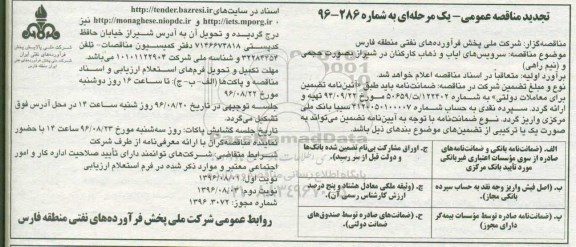 تجدید مناقصه عمومی – یک مرحله‌ای به شماره ۲۸۶-۹۶
مناقصه‌گزار: شرکت ملی پخش فرآورده‌های نفتی منطقه فارس
موضوع مناقصه: سرویس‌های ایاب و ذهاب کارکنان در شیراز بصورت حجمی
و (نیم راهی)
برآورد اولیه: متعاقباً در اسناد مناقصه اعلام خواهد شد.
نوع و مبلغ تضمین شرکت در مناقصه: ضمانت‌نامه باید طبق «آئین‌نامه تضمین
برای معاملات دولتی» به شماره ۱۲۳۴۰۲/ت۵۰۶۵۹هـ مورخ ۹۴/۰۹/۲۲ تهیه و
ارائه گردد. سپرده نقدی به حساب شماره سیبا بانک ملی
مرکزی واریز گردد. نوع ضمانت‌نامه با توجه به آیین‌نامه تضمین می‌تواند به
صورت یک یا ترکیبی از تضمین‌های موضوع بندهای ذیل باشد.
الف. (ضمانت‌نامه بانکی و ضمانت‌نامه‌های
صادره از سوی مؤسسات اعتباری غیربانکی
مورد تأیید بانک مرکزی
ج. اوراق مشارکت بی‌نام تضمین شده بانک‌ها
و دولت قبل از سر رسید).
ب. (اصل فیش واریز وجه نقد به حساب سپرده
بانکی مجاز).
ج. (وثیقه ملکی معادل هشتاد و پنج درصد
ارزش کارشناسی رسمی آن).
پ. (ضمانت‌نامه صادره توسط مؤسسات بیمه‌گر
دارای مجوز)
ح. (ضمانت‌های صادره توسط صندوق‌های
ضمانت دولتی).
اسناد در سایت‌های http://tender.bazresi.ir
http://iets.mporg.ir و http://monaghese.niopdc.ir نیز
درج گردیده و تحویل آن به آدرس شیراز خیابان حافظ
کدپستی ۷۱۴۶۶۷۳۸۱۸ دفتر کمیسیون مناقصات- تلفن
۳۲۲۸۴۳۵۴ و شناسه ملی شرکت ۱۰۱۰۱۱۲۲۹۰۴ می‌باشد.
مهلت تکمیل و تحویل فرم‌های استعلام ارزیابی و اسناد
مناقصه و پاکت‌ها (الف – ب – ج): تا ساعت ۱۶ روز دوشنبه
مورخ ۹۶/۰۸/۲۲
جلسه توجیهی در تاریخ ۹۶/۰۸/۲۰ روز شنبه ساعت ۱۴ در محل آدرس فوق
تشکیل می‌گردد.
تاریخ جلسه گشایش پاکات: روز سه‌شنبه مورخ ۹۶/۰۸/۲۳ ساعت ۱۴ با حضور
نماینده مناقصه‌گران با ارائه معرفی‌نامه از طرف شرکت
شرایط متقاضی: شرکت‌های توانمند دارای تأیید صلاحیت اداره کار و امور
اجتماعی معتبر و موارد ذکر شده در فرم استعلام ارزیابی
نوبت اول: ۱۳۹۶/۰۸/۰۱
نوبت دوم: ۱۳۹۶/۰۸/۰
شماره مجوز: ۱۳۹۶.۳۰۷۲
روابط عمومی شرکت ملی پخش فرآورده‌های نفتی منطقه فارس